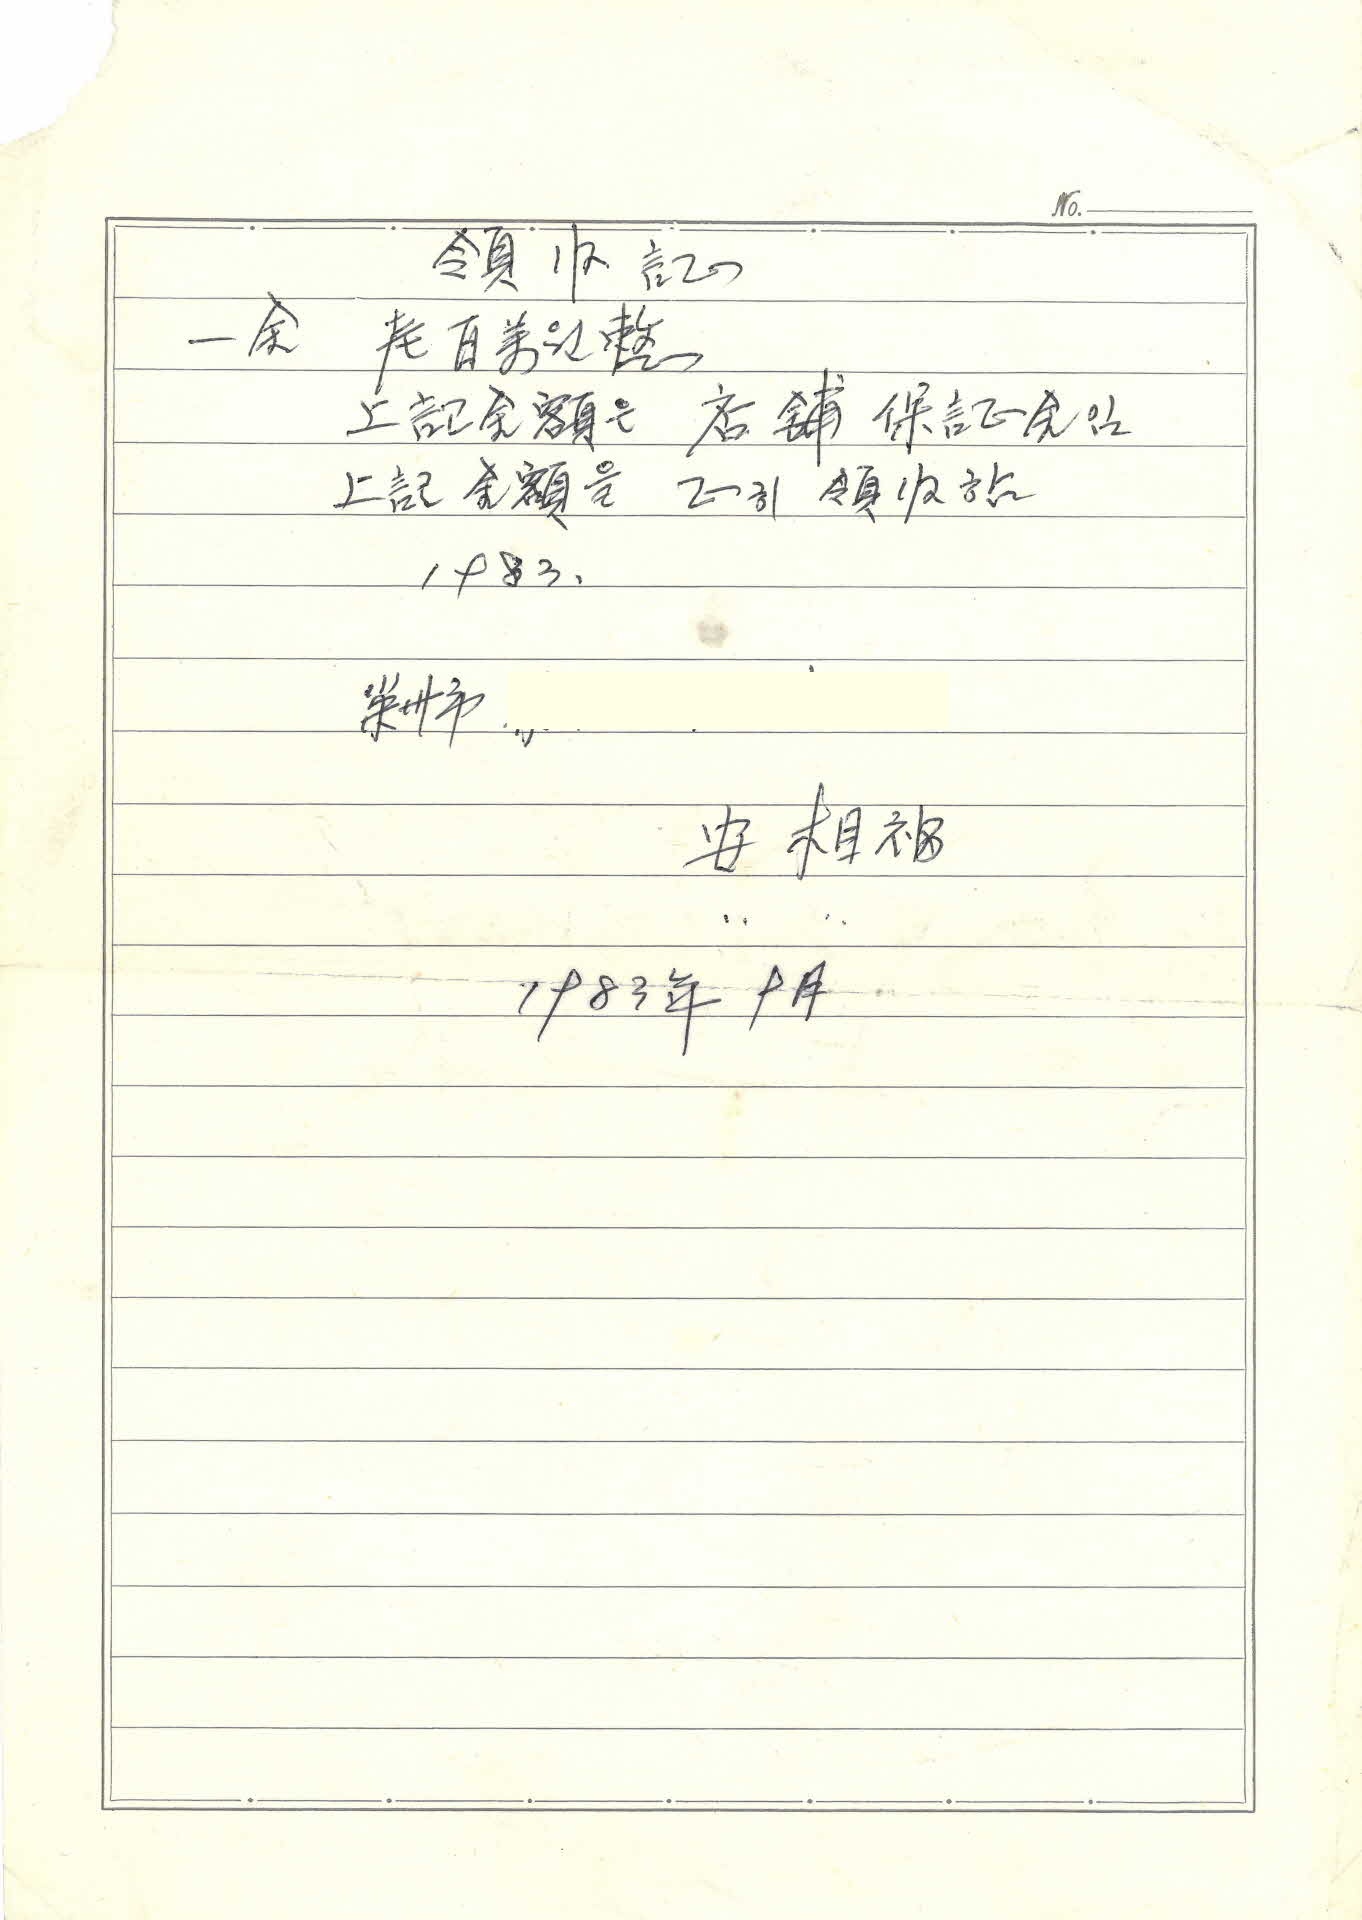 No.
領収記
一金 壱百萬원整
上記金額은 店舖 保証金임
上記金額을 正히 領収함
1983.
榮州市
安相福
1983年 9月